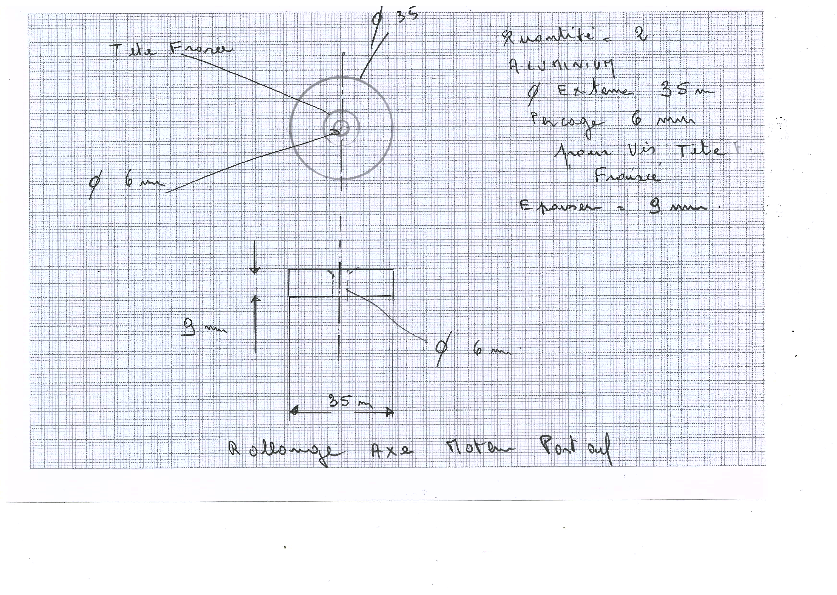 φ 35
Tête Fraisée
φ 6 mm
Quantité = 2
ALUMINIUM
φ Externe 35 m
Perçage 6 mm
pour Vis Tête
Fraisée
Epaisser = 9 mm
9 mm
φ 6 mm
35 m
Rallonge Axe Moteur Portail